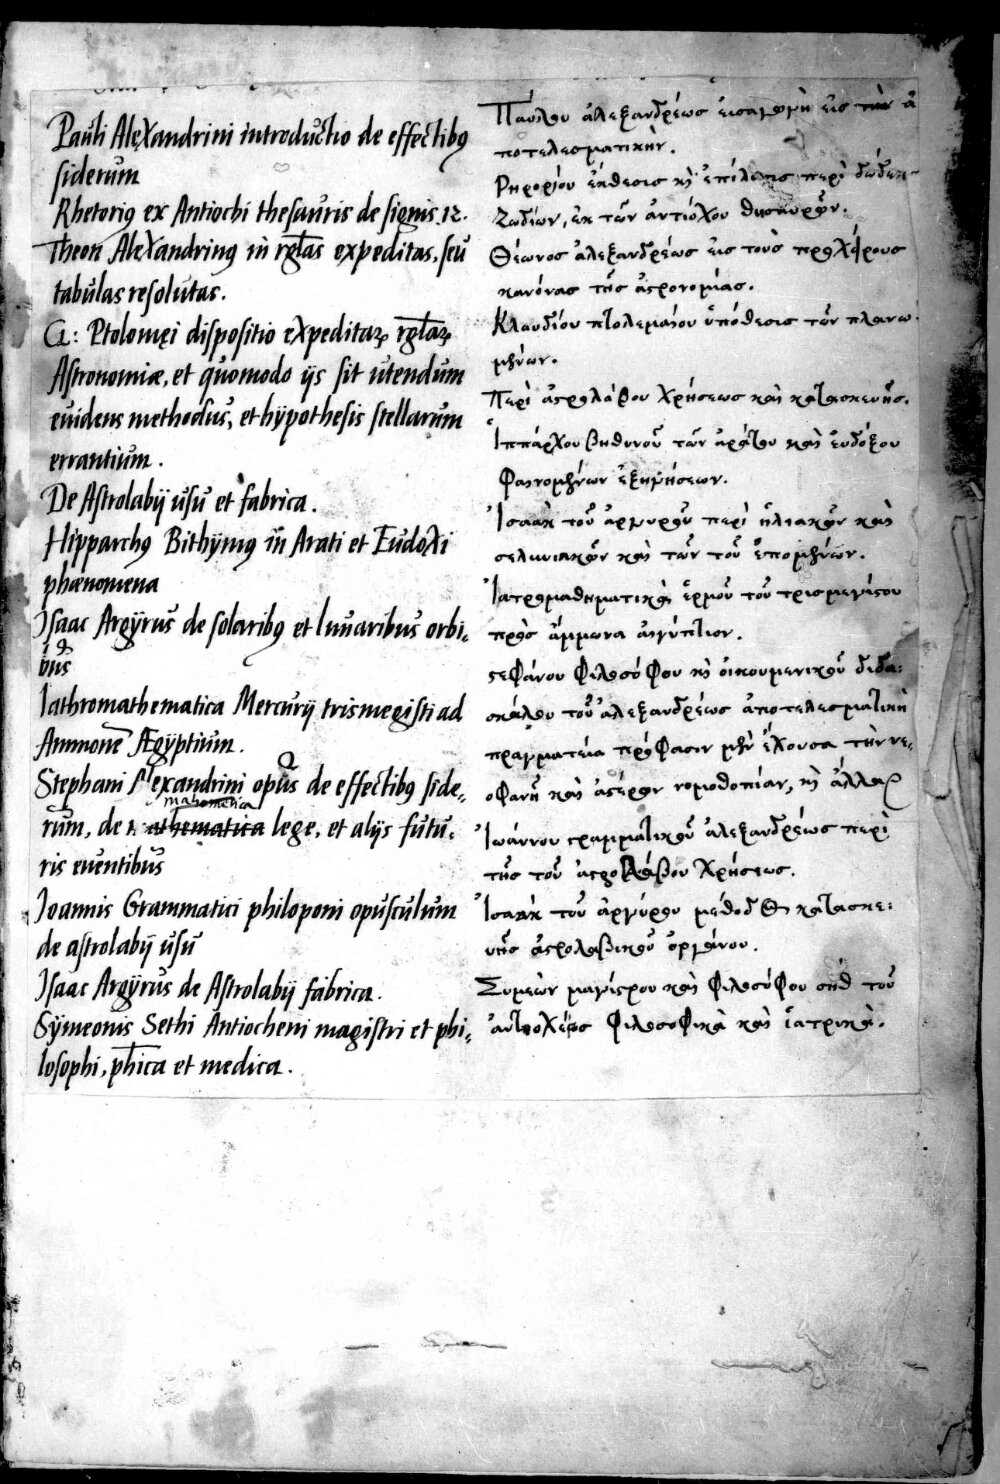 Pauli Alexandrini introductio de effectibꝰ
siderum
Rhetoriꝰ ex Antiochi thesauris de signis .12.
Theon Alexandrinꝰ in rgl̄as expeditas, seu
tabulas resolutas.
Cl: Ptolomęi dispositio expeditaꝝ rgl̄aꝝ
Astronomiæ, et quomodo ijs sit utendum
euidens methodus, et hÿpothesis stellarum
errantium.
De Astrolabij usu et fabrica.
Hipparchꝰ Bithÿnꝰ in Arati et Eudoxi
phænomena
Isaac Argÿrus de solaribꝰ et lunaribus orbi,
bus
Iathromathematica Mercurij trismegisti ad
Ammonē Ægÿptium.
Stephani Alexandrini opus de effectibꝰ side,
mahometica
rum, de mathematica lege, et alijs futu,
ris euentibus
Joannis Grammatici philoponi opusculum
de astrolabij usu
Isaac Argÿrus de Astrolabij fabrica.
Sÿmeonis Sethi Antiocheni magistri et phi,
losophi, ph̄ica et medica.
Παύλου ἀλεξανδρέως εἰσαγωγὴ εἰς τὴν ἀ
ποτελεσματικήν.
Ρητορίου ἔκθεσις κ̀ ἐπίλυσις περὶ δώδεκα
ζωδίων, ἐκ τῶν ἀντιόχου θησαυρῶν.
Θέωνος ἀλεξανδρέως εἰς τοὺς προχείρους
κανόνας τῆς ἀστρονομίας.
Κλαυδίου πτολεμαίου ὑπόθεσις τῶν πλανω
μένων.
Περὶ ἀστρολάβου χρήσεως καὶ κατασκευῆς.
Ἱππάρχου βιθυνοῦ τῶν ἀράτου καὶ ἐυδόξου
φαινομένων ἐξηγήσεων.
Ἰσαὰκ τοῦ ἀργυροῦ περὶ ἡλιακῶν καὶ
σεληνιακῶν καὶ τῶν τοῦ ἑπομένων.
Ἰατρομαθηματικὰ ἑρμοῦ τοῦ τρισμεγίστου
πρὸς ἄμμωνα αἰγύπτιον.
ςεφάνου φιλοσόφου κ̀ οἰκουμενικοῦ διδα:
σκάλου τοῦ ἀλεξανδρέως ἀποτελεσματικὴ
πραγματεία πρόφασιν μὲν ἔχουσα τὴν νε,
οφανῆ καὶ ἄθεον νομοθεσίαν, κ̀ ἄλλα
Ἰωάννου γραμματικοῦ ἀλεξανδρέως περὶ
τῆς τοῦ ἀστρολάβου χρήσεως.
Ἰσαὰκ τοῦ ἀργύρου μέθοδος κατασκε:
υῆς ἀστρολαβικοῦ ὀργάνου.
Συμεὼν μαγίστρου καὶ φιλοσόφου σὴθ τοῦ
ἀντιοχέως φιλοσοφικὰ καὶ ἰατρικά.